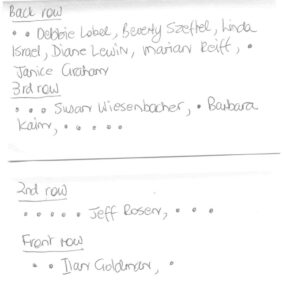 Back row
• • Debbie Lobel, Beverly Szeftel, Linda
Israel, Diane Lewin, Marian Reiff, •
Janice Graham
3rd row
• • • Susan Wiesenbacher, • Barbara
Kaim, • • • • •
2nd row
• • • • • Jeff Rosen, • • •
Front row
• • Ilan Goldman, •